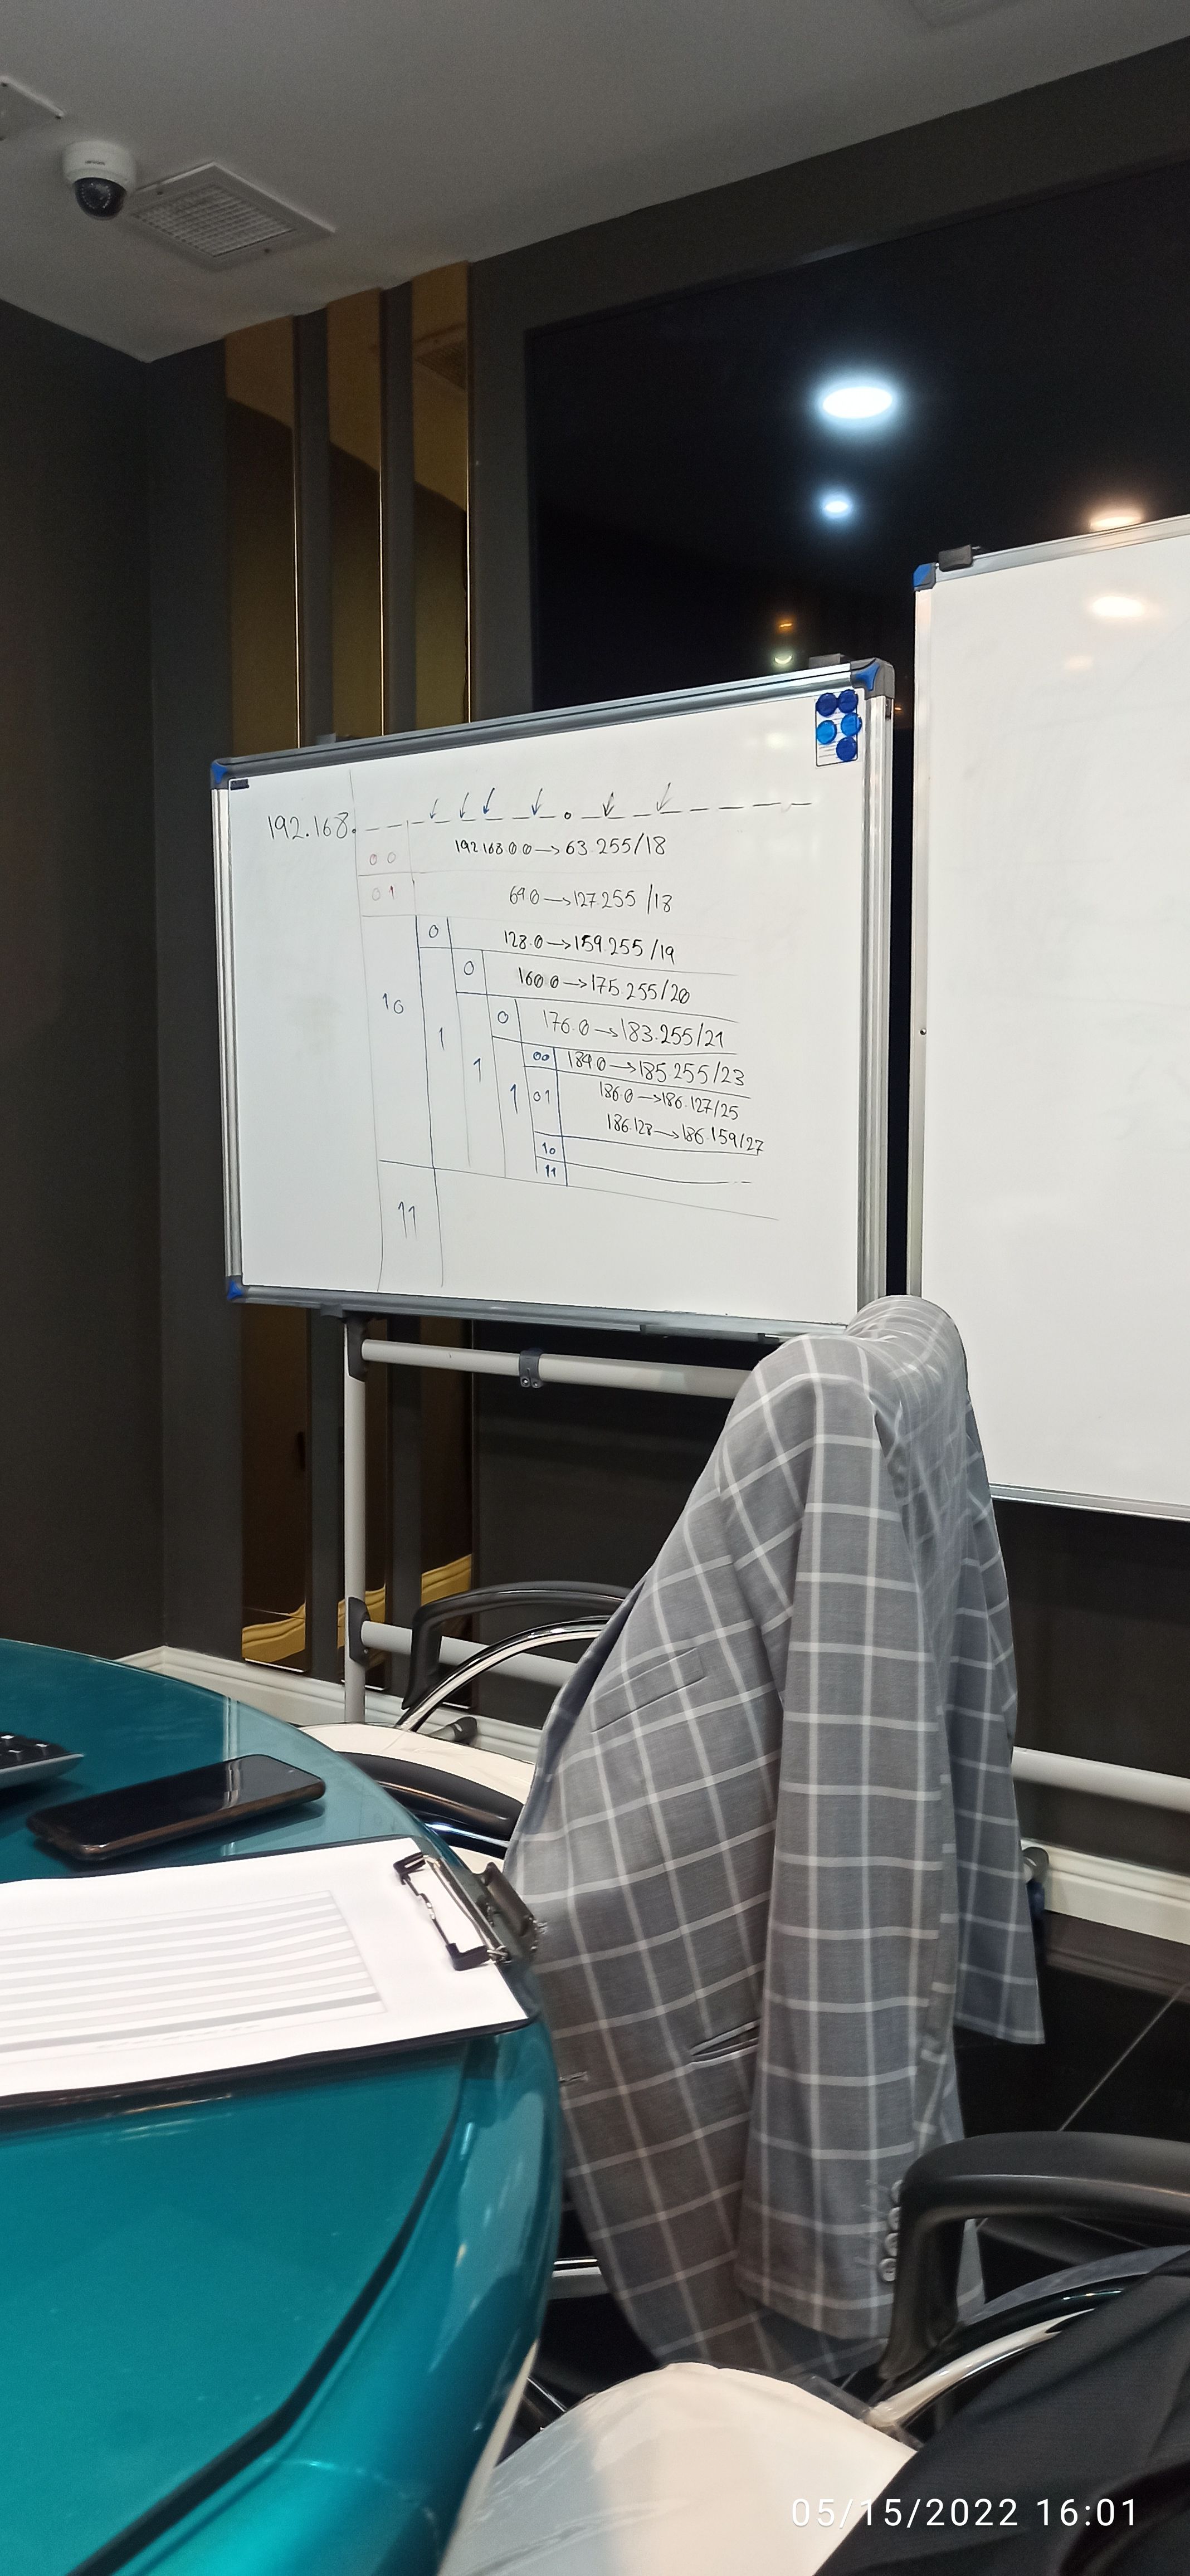 192.168.
0 0 192 168 0 0 → 63 255/18
0 1 64 0 → 127 255 /18
0 128.0 → 159.255 /19
0 160 0 → 175 255/20
10
0 176.0 → 183.255/21
1
00 184 0 → 185 255/23
1
1 01 186.0 → 186.127/25
186.128 → 186.159/27
10
11
11
05/15/2022 16:01